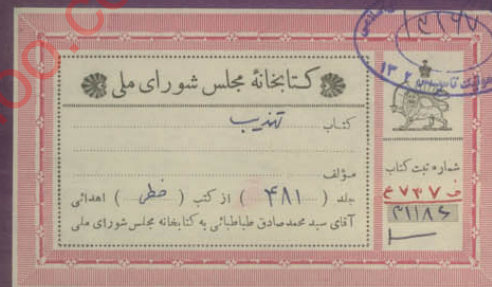 ۱۳۱۹۷
کتابخانهٔ مجلس شورای ملی
کتاب تهذیب
مؤلف
جلد ( ۴۸۱ ) از کتب ( خطی ) اهدائی
آقای سید محمد صادق طباطبائی به کتابخانه مجلس شورای ملی
شماره ثبت کتاب
۴۷۳۷ ف
۳۱۱۸۶